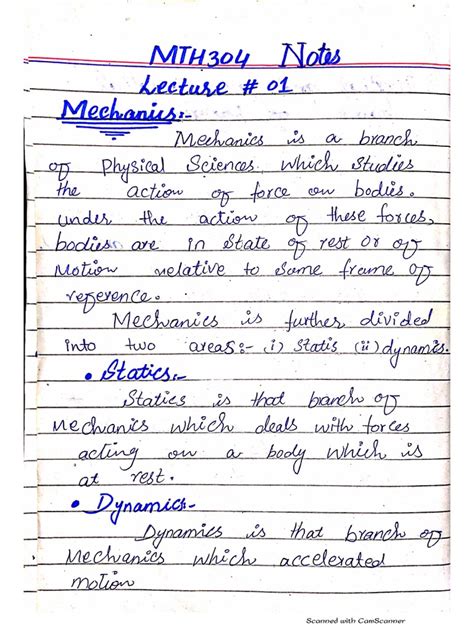 MTH304 Notes
Lecture # 01
Mechanics:-
Mechanics is a branch
of Physical Sciences which studies
the action of force on bodies.
under the action of these forces,
bodies are in state of rest or of
Motion relative to some frame of
reference.
Mechanics is further divided
into two areas:- (i) Statis (ii) dynamics.
• Statics:-
Statics is that branch of
Mechanics which deals with forces
acting on a body which is
at rest.
• Dynamics:-
Dynamics is that branch of
Mechanics which accelerated
motion
Scanned with CamScanner